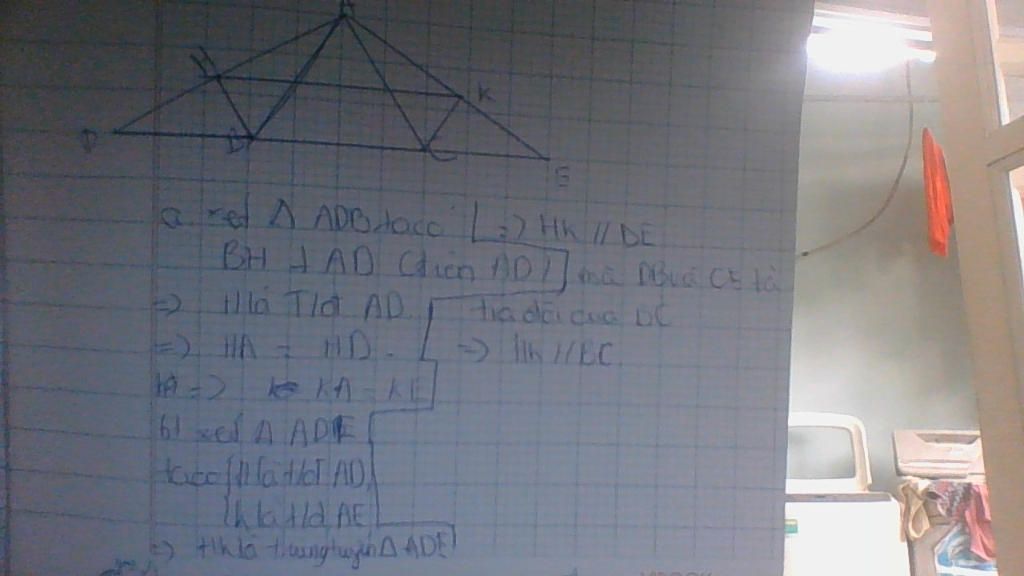 A
H
K
D
B
C
E
a xét Δ ADB ta có
BH ⊥ AD (
=> H là T/đ AD
=> HA = HD.
=> KA = KE
b) xét Δ ADE
ta có { H là t/đ AD
K là t/đ AE
=> HK là trung tuyến Δ ADE
=> HK // DE
mà DB và CE là
tia đối của BC
=> HK // BC